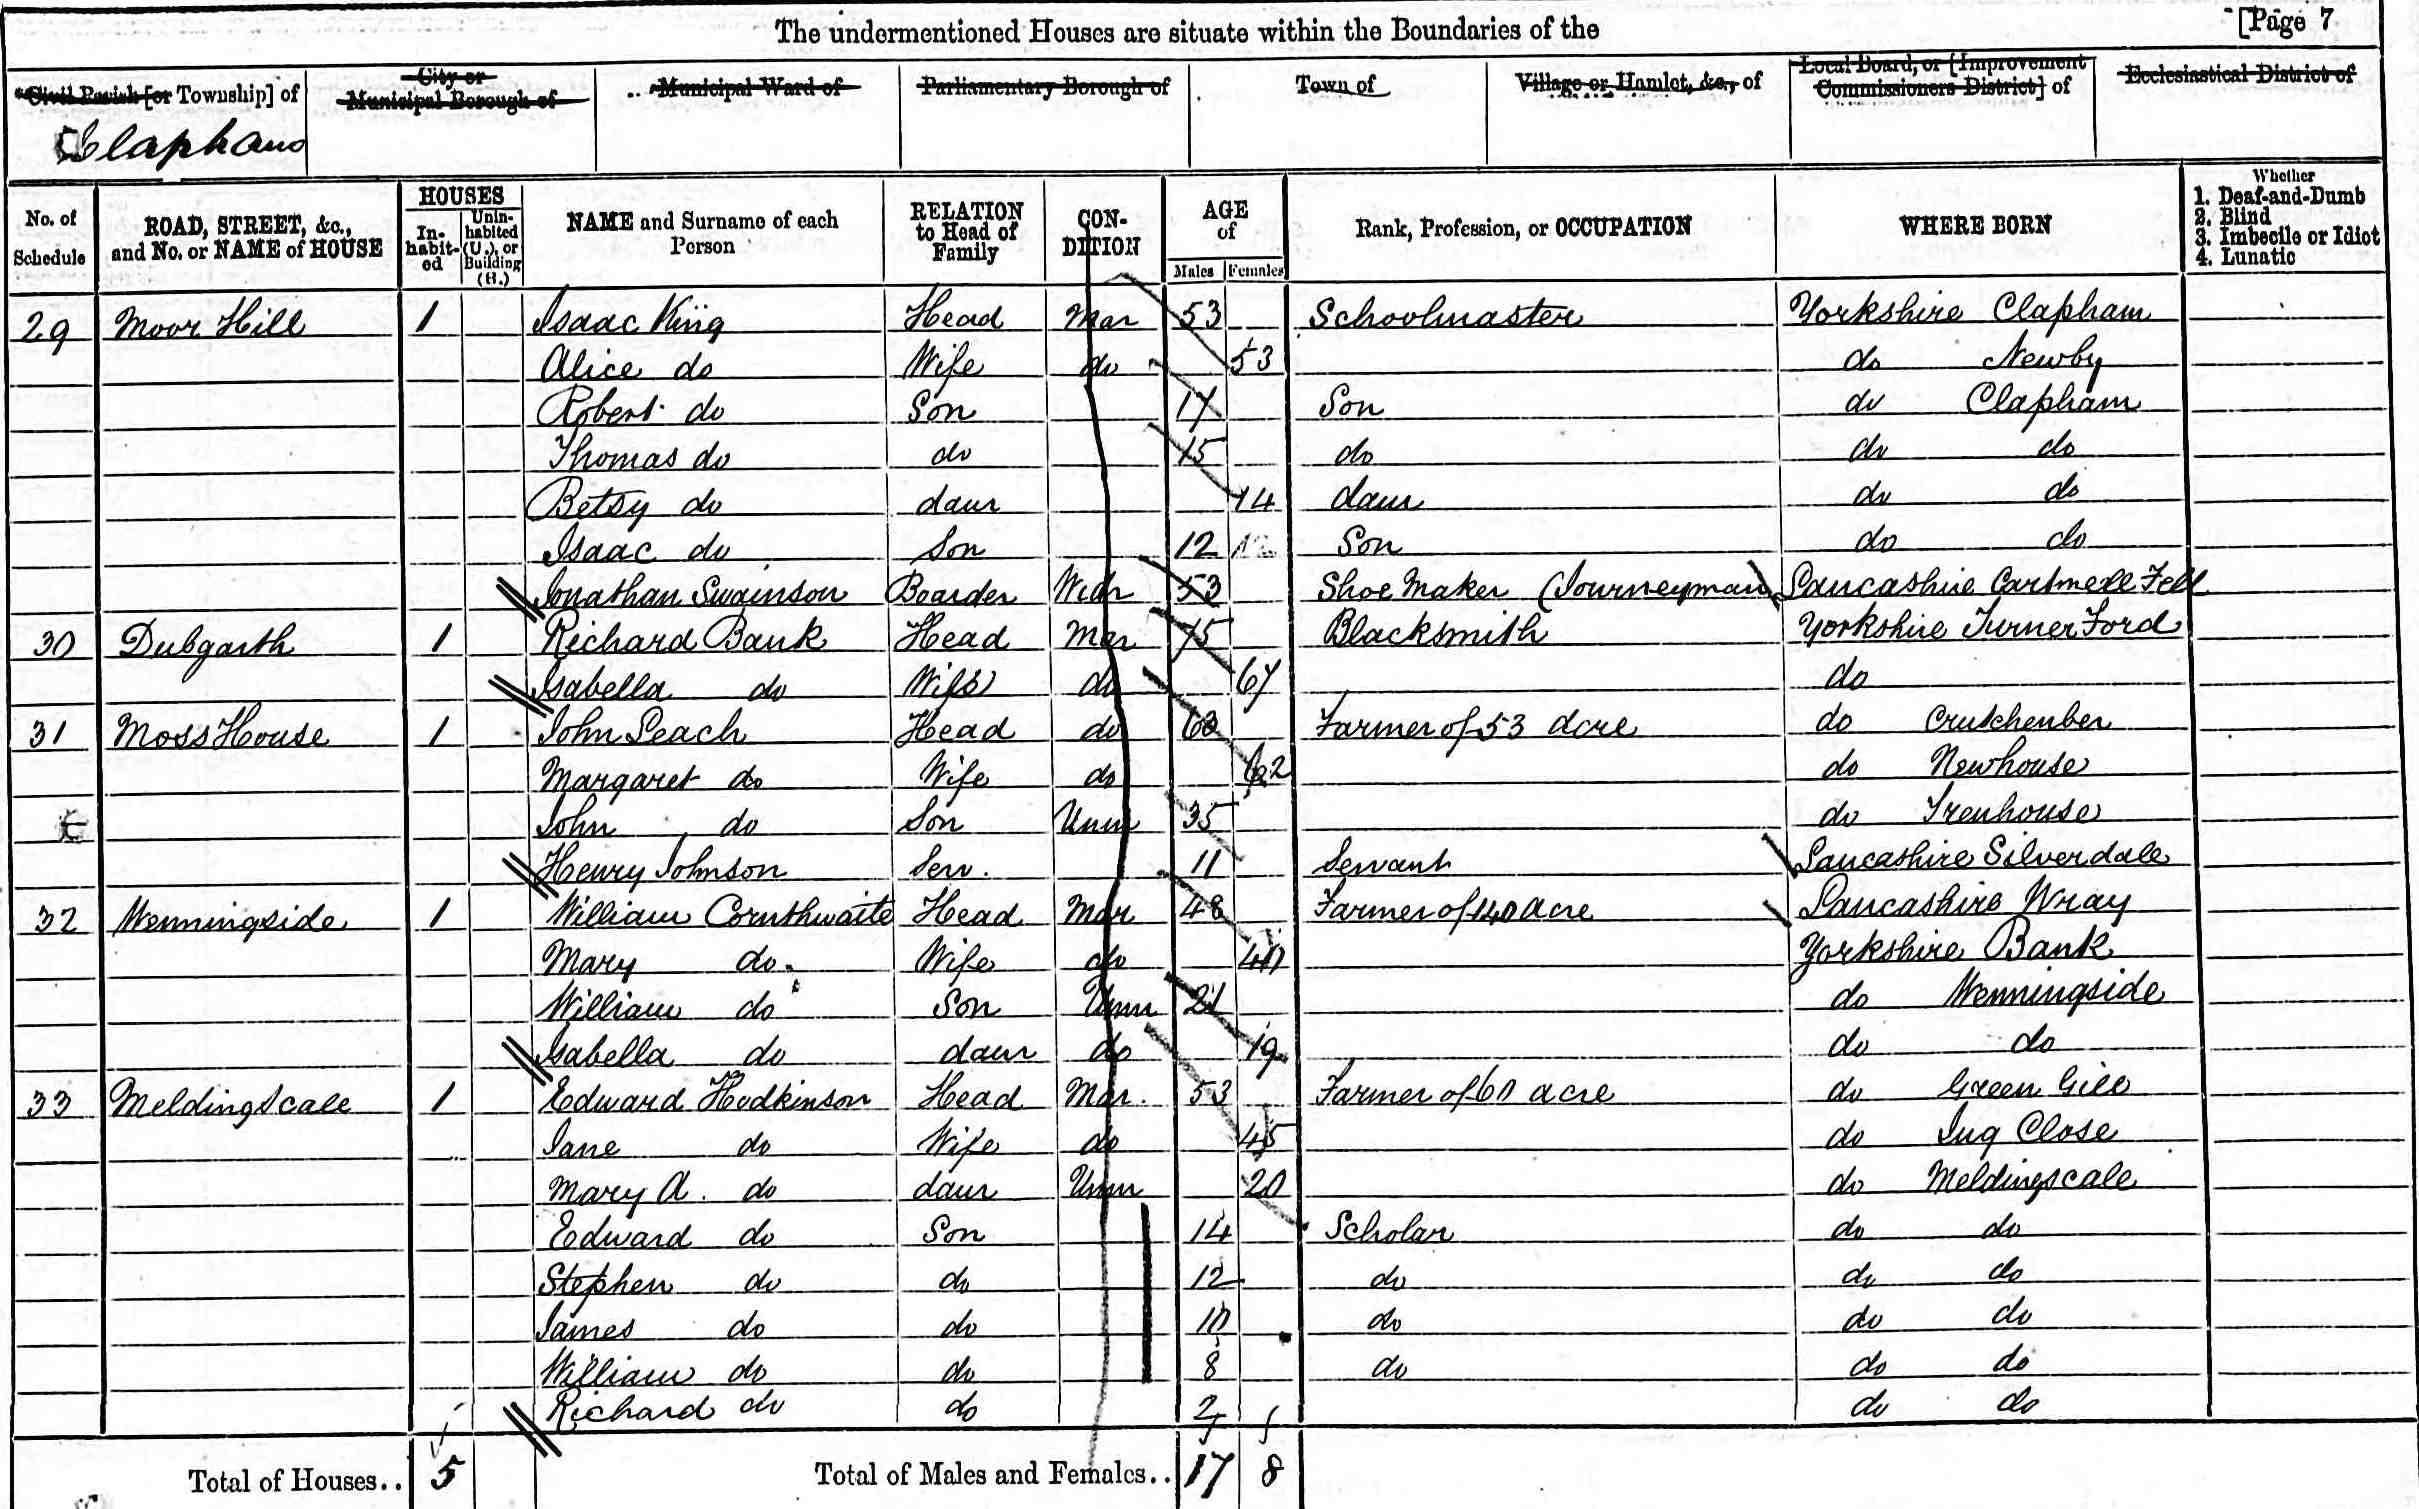 The undermentioned Houses are situate within the Boundaries of the
[Page 7
Civil Parish [or Township] of
City or Municipal Borough of
Municipal Ward of
Parliamentary Borough of
Town of
Village or Hamlet, &c., of
Local Board, or [Improvement Commissioners District] of
Ecclesiastical District of
Clapham
No. of Schedule
ROAD, STREET, &c., and No. or NAME of HOUSE
HOUSES
In-habit-ed
Unin-habited (U.), or Building (B.)
NAME and Surname of each Person
RELATION to Head of Family
CON-DITION
AGE of
Males Females
Rank, Profession, or OCCUPATION
WHERE BORN
Whether
1. Deaf-and-Dumb
2. Blind
3. Imbecile or Idiot
4. Lunatic
29 Moor Hill 1 Isaac King Head Mar 53 Schoolmaster Yorkshire Clapham
Alice do Wife do 53 do Newby
Robert do Son 17 Son do Clapham
Thomas do do 15 do do do
Betsy do daur 14 daur do do
Isaac do Son 12 Son do do
Jonathan Swainson Boarder Widr 53 Shoe Maker (Journeyman) Lancashire Cartmell Fell
30 Dubgarth 1 Richard Bank Head Mar 75 Blacksmith Yorkshire Turner Ford
Isabella do Wife do 67 do
31 Moss House 1 John Leach Head do 63 Farmer of 53 acre do Crutchenber
Margaret do Wife do 62 do Newhouse
John do Son Unm 35 do Trenhouse
Henry Johnson Serv. 11 Servant Lancashire Silverdale
32 Wenningside 1 William Cornthwaite Head Mar 48 Farmer of 140 acre Lancashire Wray
Mary do. Wife do 40 Yorkshire Bank
William do Son Unm 21 do Wenningside
Isabella do daur do 19 do do
33 Meldingscale 1 Edward Hodkinson Head Mar. 53 Farmer of 60 acre do Green Gill
Jane do Wife do 45 do Ing Close
Mary A. do daur Unm 20 do Meldingscale
Edward do Son 14 Scholar do do
Stephen do do 12 do do do
James do do 10 do do do
William do do 8 do do do
Richard do do 2 do do
Total of Houses.. 5 Total of Males and Females.. 17 8